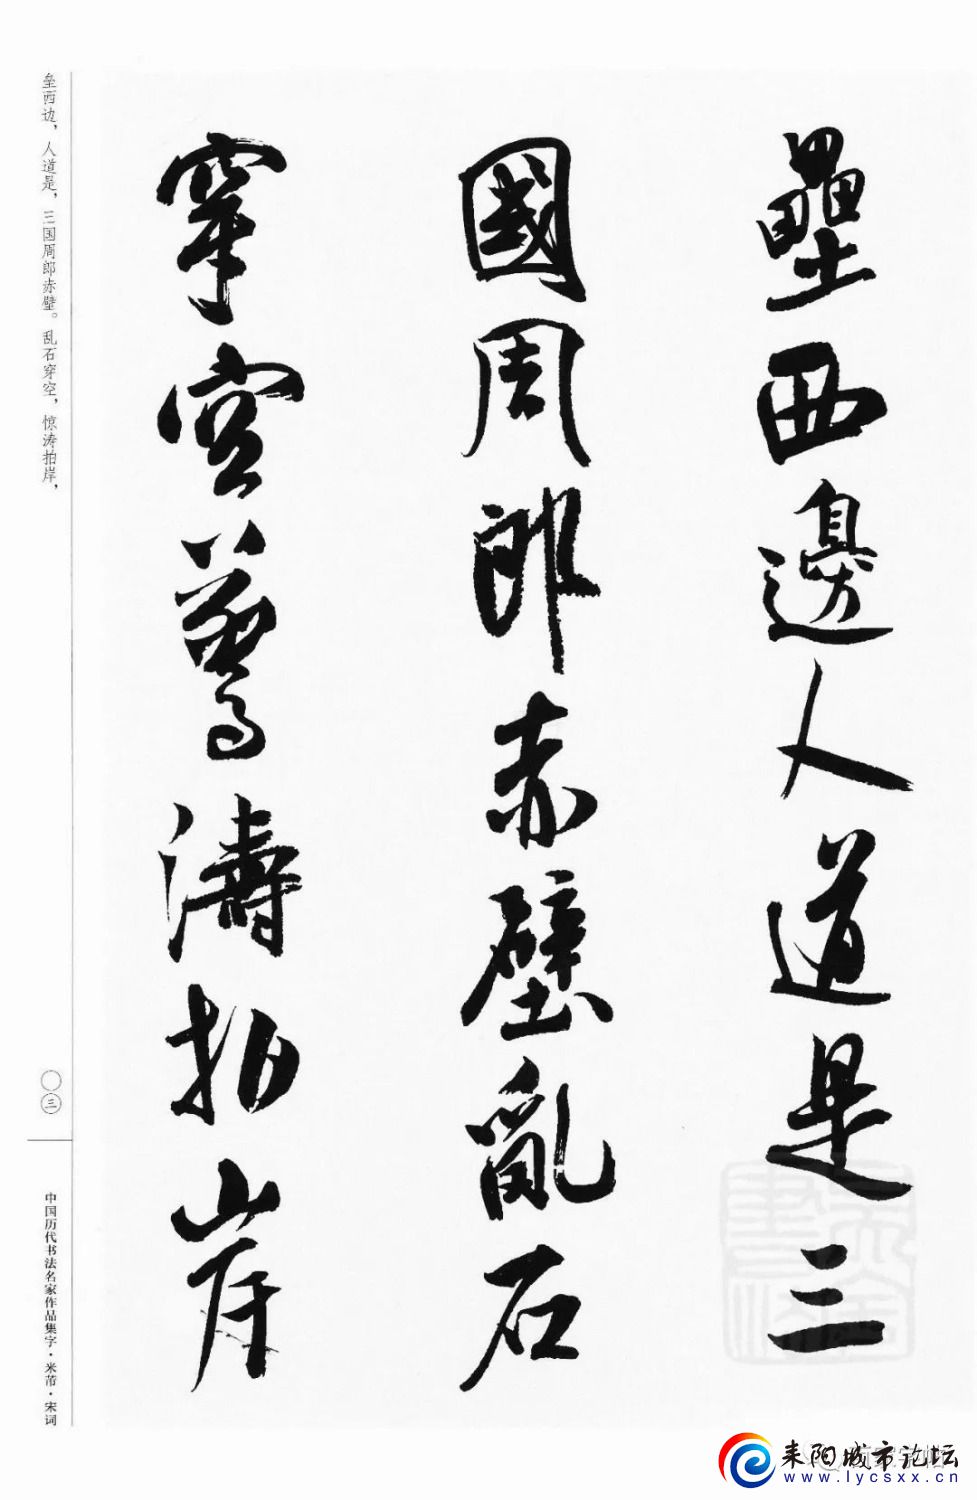 壘西邊人道是三
國周郎赤壁亂石
穿空驚濤拍岸
垒西边，人道是，三国周郎赤壁。乱石穿空，惊涛拍岸，
〇三
中国历代书法名家作品集字·米芾·宋词
耒阳城市论坛
www.lycsxx.cn